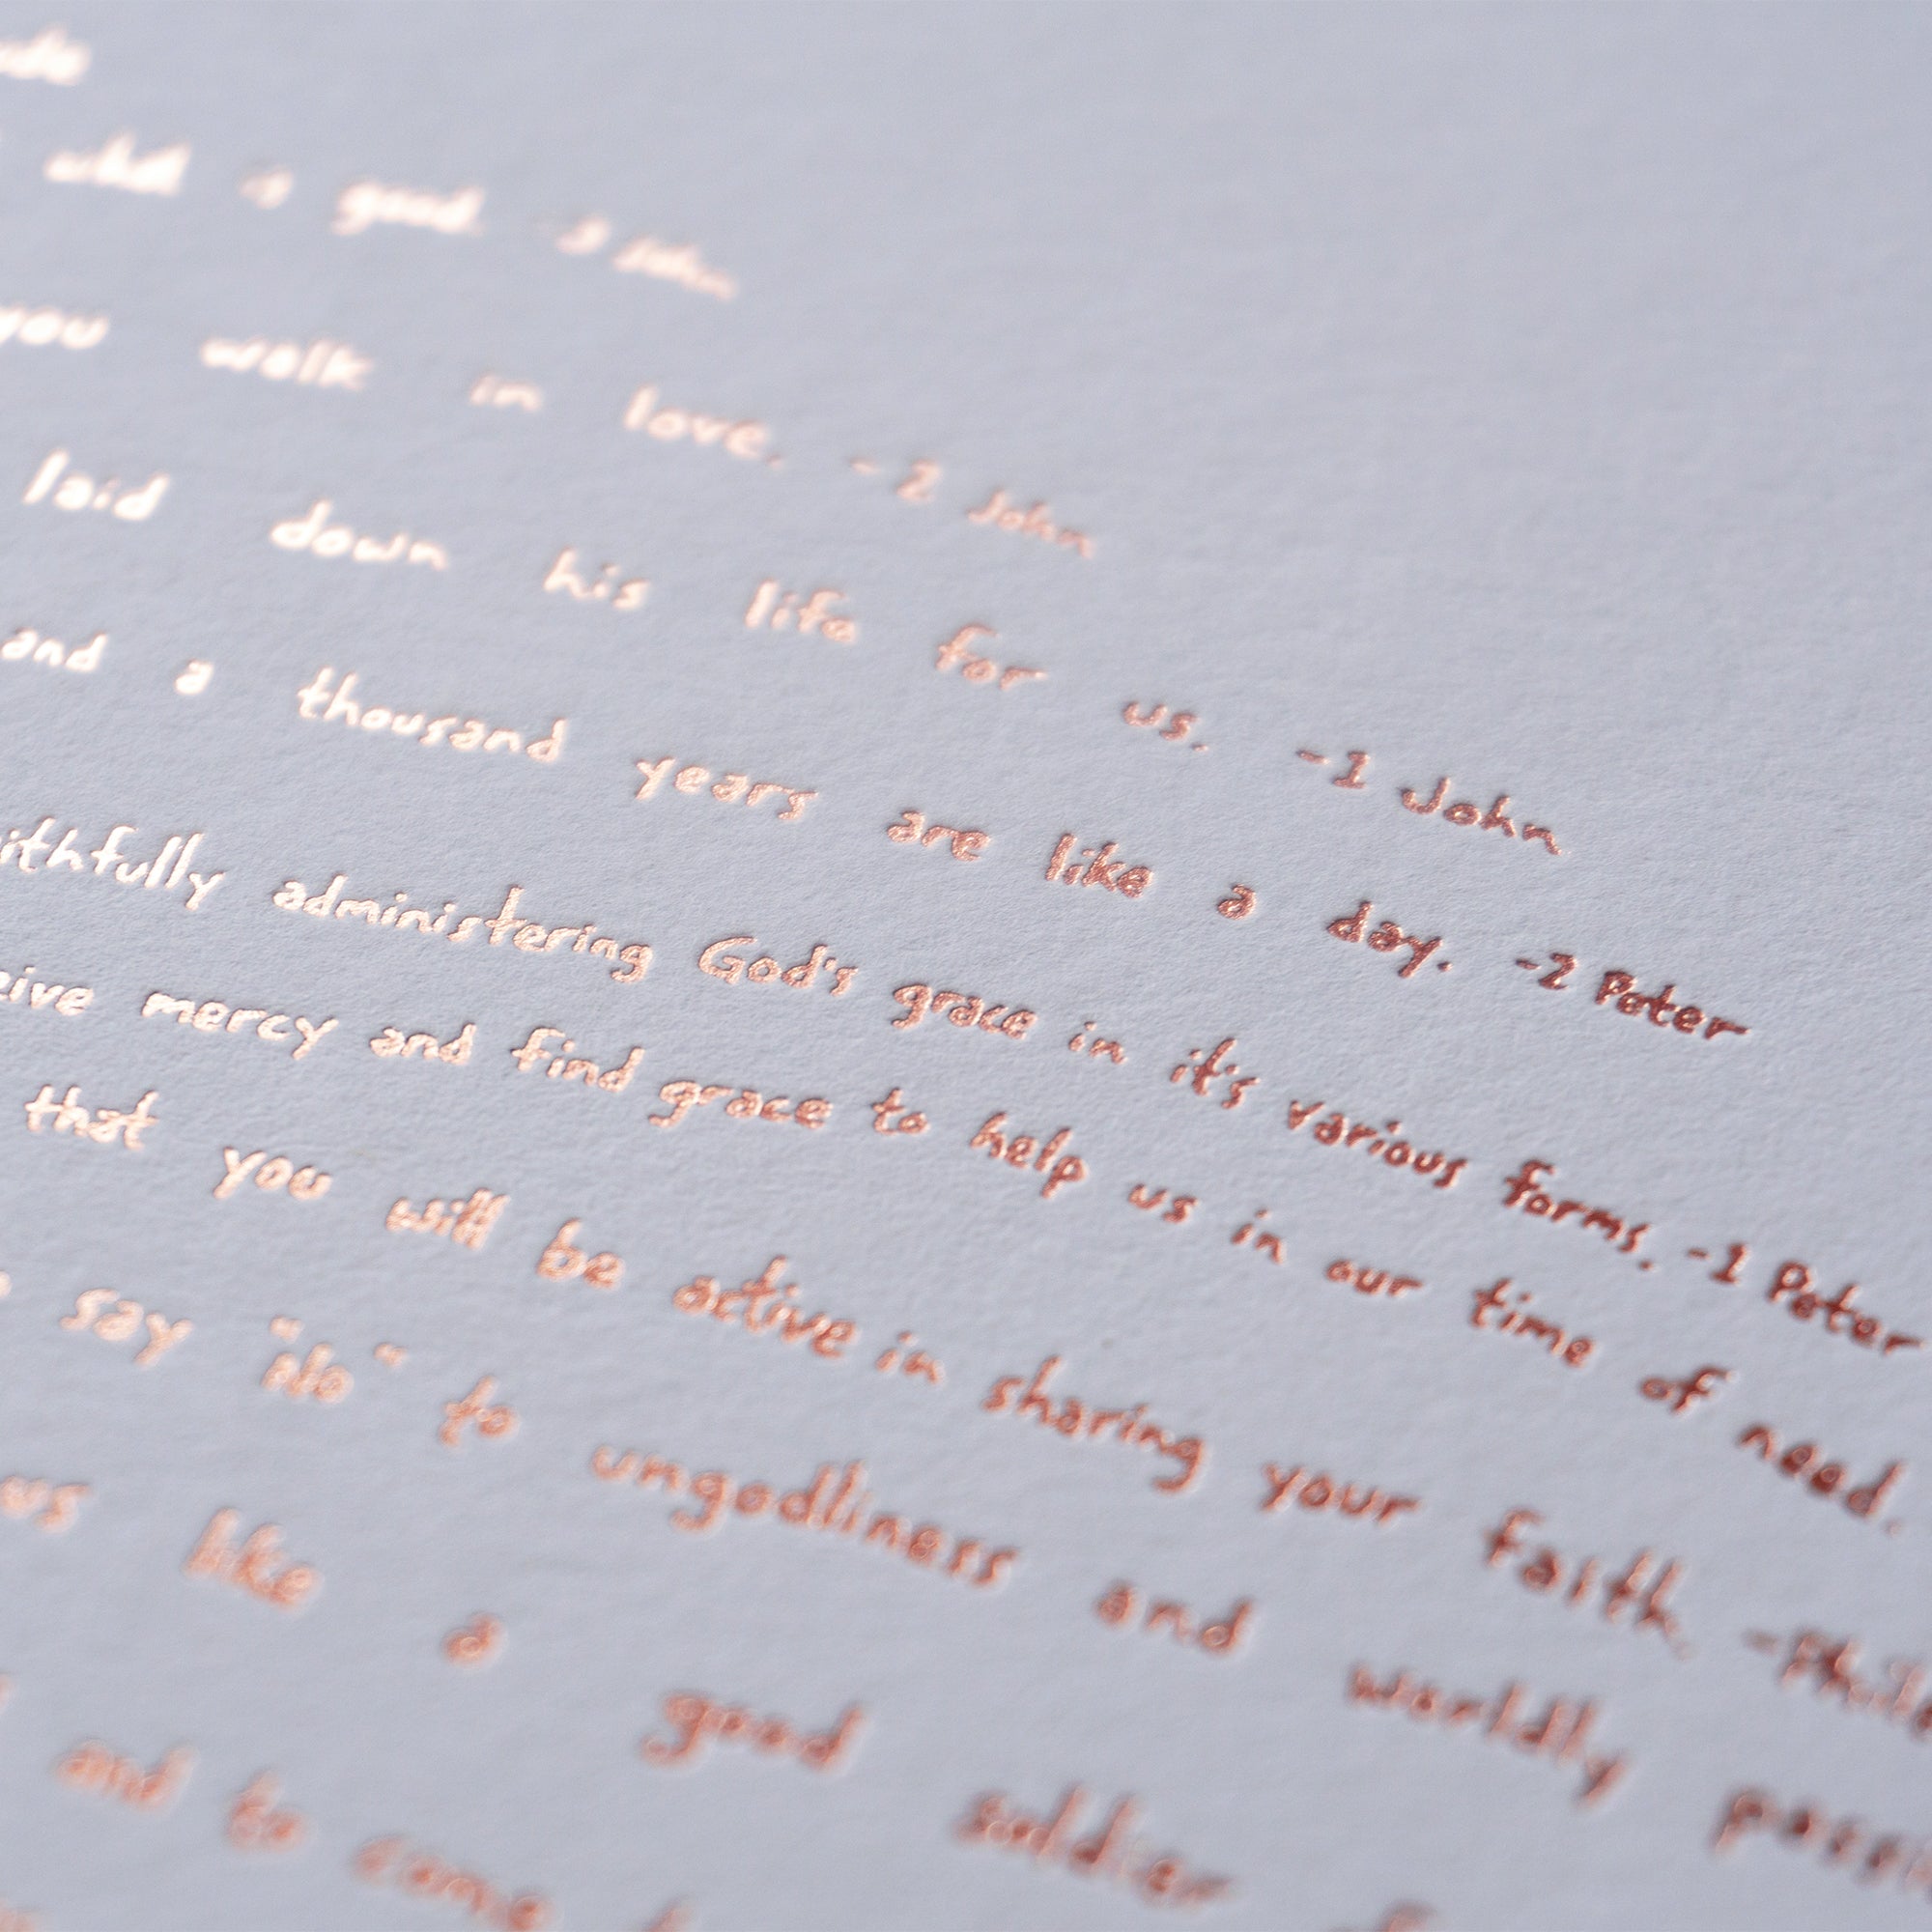 what is good. -3 John
you walk in love. -2 John
laid down his life for us. -1 John
and a thousand years are like a day. -2 Peter
ithfully administering God's grace in it's various forms. -1 Peter
eive mercy and find grace to help us in our time of need.
that you will be active in sharing your faith. -Phile
say "No" to ungodliness and worldly passi
us like a good soldier
and to come